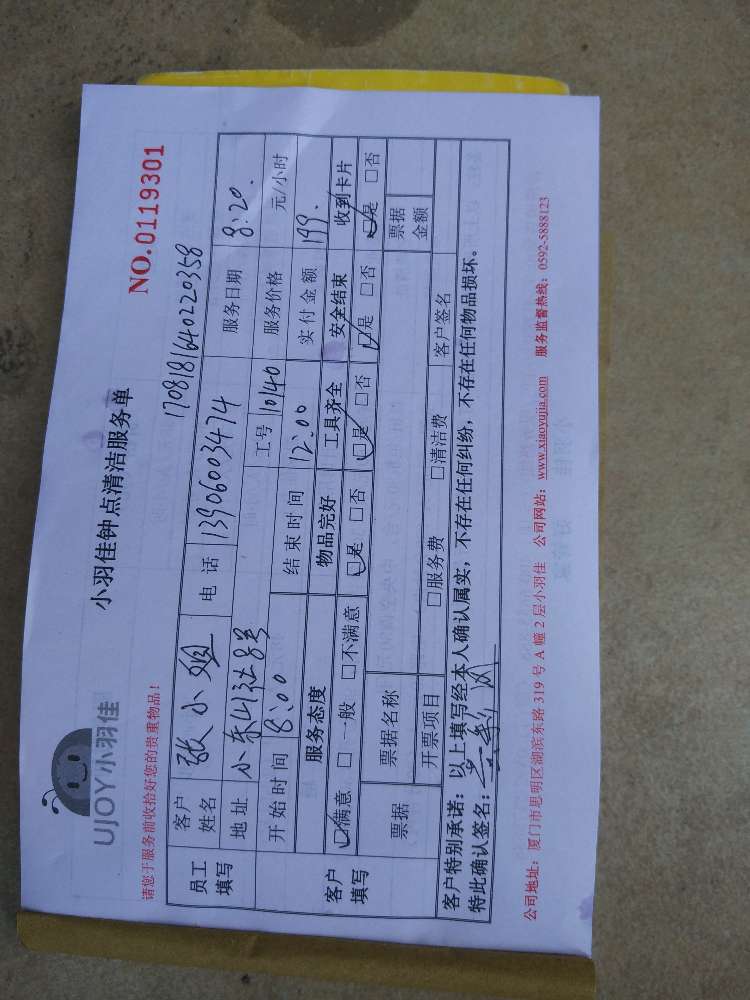 UJOY小羽佳
小羽佳钟点清洁服务单
请您于服务前收拾好您的贵重物品!
1708181640220358
NO.0119301
员工填写 客户姓名 张小姐 电话 13906003474 服务日期 8:20.
地址 小东山社8号 工号 10140 服务价格 元/小时
开始时间 8:00 结束时间 12:00 实付金额 199.
客户填写 服务态度 物品完好 工具齐全 安全结束 收到卡片
☑满意 □一般 □不满意 ☑是 □否 ☑是 □否 ☑是 □否 ☑是 □否
票据 票据名称 票据金额
开票项目 □服务费 □清洁费 客户签名
客户特别承诺:以上填写经本人确认属实,不存在任何纠纷,不存在任何物品损坏。
特此确认签名:
公司地址:厦门市思明区湖滨东路319号A幢2层小羽佳 公司网站:www.xiaoyujia.com 服务监督热线:0592-5888123